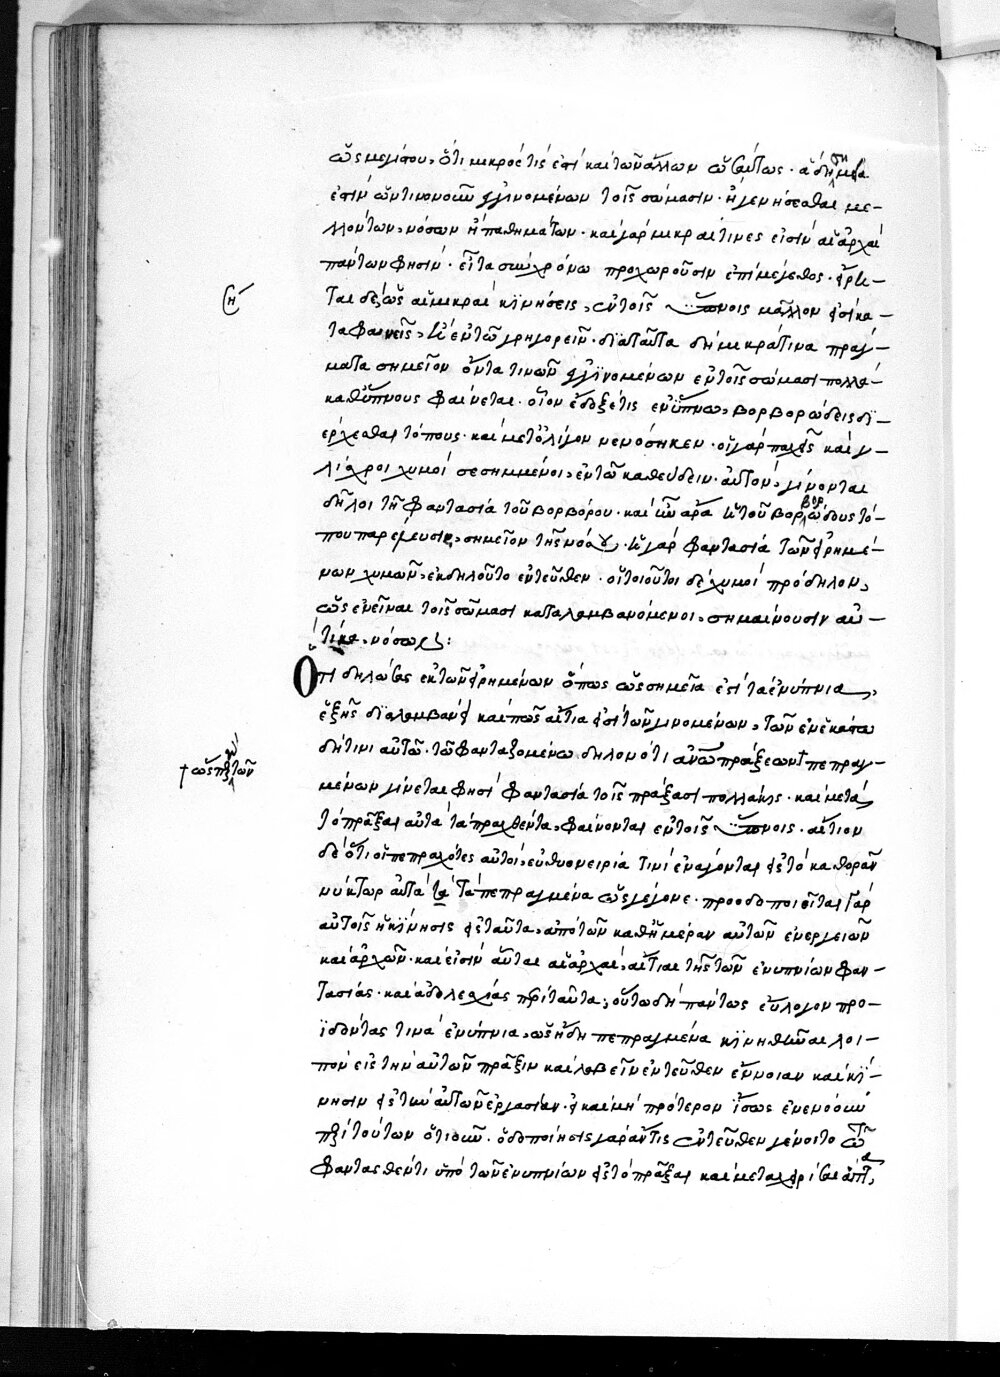 ὡς μελίτου, ὅτι μικρός τίς ἐστι καὶ τῶν ἄλλων ὡσαύτως· ἃ δὴ σημεῖά
ἐστιν ὡντινονοῦν γινομένων τοῖς σώμασιν· ἢ γενήσεσθαι με-
λλόντων, νόσων ἢ παθημάτων· καὶ γὰρ μικραί τινες εἰσὶν αἱ ἀρχαὶ
πάντων φησίν· εἶτα σὺν χρόνω προχωροῦσιν ἐπὶ μέγεθος·
ται δεξιῶς αἱ μικραὶ κϊνήσεις, ἐν τοῖς ὕπνοις μᾶλλον εἰσὶ κα-
ταφανεῖς, ἢ ἐν τῶ γρηγορεῖν· διὰ ταῦτα δὴ μικρά τινα πράγ-
ματα σημεῖον ὄντα τινῶν γινομένων ἐν τοῖς σώμασι πολλά-
καθύπνους φαίνεται· οἷον ἔδοξέ τις ἐν ὕπνω, βορβορώδεις δϊ-
έρχεσθαι τόπους· καὶ μετ' ὀλίγον νενόσηκεν· οἱ γὰρ παχεῖς καὶ γ-
λίσχροι χυμοὶ σεσημμένοι, ἐν τῶ καθεύδειν αὐτὸν, γίνονται
δῆλοι τῆ φαντασία τοῦ βορβόρου· καὶ ἦν ἄρα ἡ τοῦ βορβορώδους τό-
που παρέλευσις, σημεῖον τῆς νόσου· ἡ γὰρ φαντασία τῶν εἰρημέ-
νων χυμῶν, ἐκδηλοῦτο ἐντεῦθεν· οἱ τοιοῦτοι δὲ χυμοὶ πρόδηλον,
ὡς ἐνεῖναι τοῖς σώμασι καταλαμβανόμενοι, σημαίνουσιν αὐ-
τίκα νόσων:
Ὅτι δηλώσας ἐκ τῶν εἰρημένων ὅπως ὡς σημεῖα ἐστὶ τὰ ἐνύπνια,
ἑξῆς διαλαμβάνει καὶ πῶς αἴτια ἐστὶ τῶν γινομένων, τῶν ἐν ἑκάστω
δή τινι αὐτῶ· τῶ φανταζομένω δηλονότι ἄνω πράξεων πεπραγ-
μένων γίνεται φησὶ φαντασία τοῖς πράξασι πολλάκις· καὶ μετὰ
τὸ πρᾶξαι αὐτὰ τὰ πραχθέντα, φαίνονται ἐν τοῖς ὕπνοις· αἴτιον
δὲ ὅτι οἱ πεπραχότες αὐτοὶ, εὐθυονειρία τινὶ ἐνάγονται εἰς τὸ καθορᾶν
νύκτωρ αὐτὰ τὰ πεπραγμένα ὡς λέγομεν· προοδοποιεῖται γὰρ
αὐτοῖς ἡ κίνησις εἰς ταῦτα, ἀπὸ τῶν καθ' ἡμέραν αὐτῶν ἐνεργειῶν
καὶ ἀρχῶν· καὶ εἰσὶν αὗται αἱ ἀρχαὶ, αἴτιαι τῆς τῶν ἐνυπνίων φαν-
τασίας· καὶ ἀδολεσχίας περὶ ταῦτα, οὕτω δὴ πάντως εὔλογον προ-
ϊδόντας τινὰ ἐνύπνια, ὡς ἤδη πεπραγμένα κϊνηθῆναι λοι-
πὸν εἰς τὴν αὐτῶν πρᾶξιν καὶ λαβεῖν ἐντεῦθεν ἔννοιαν καὶ κί-
νησιν εἰς τὴν αὐτῶν ἐργασίαν· εἰ καὶ μὴ πρότερον ἴσως ἐνενόουν
περὶ τούτων ὁτιοῦν· ὁδοποίησις γὰρ αὕτις ἐντεῦθεν γένοιτο τῶ
φαντασθέντι ὑπὸ τῶν ἐνυπνίων εἰς τὸ πρᾶξαι καὶ μεταχειρίσασθαι,
ση
† ὡς περὶ τῶν